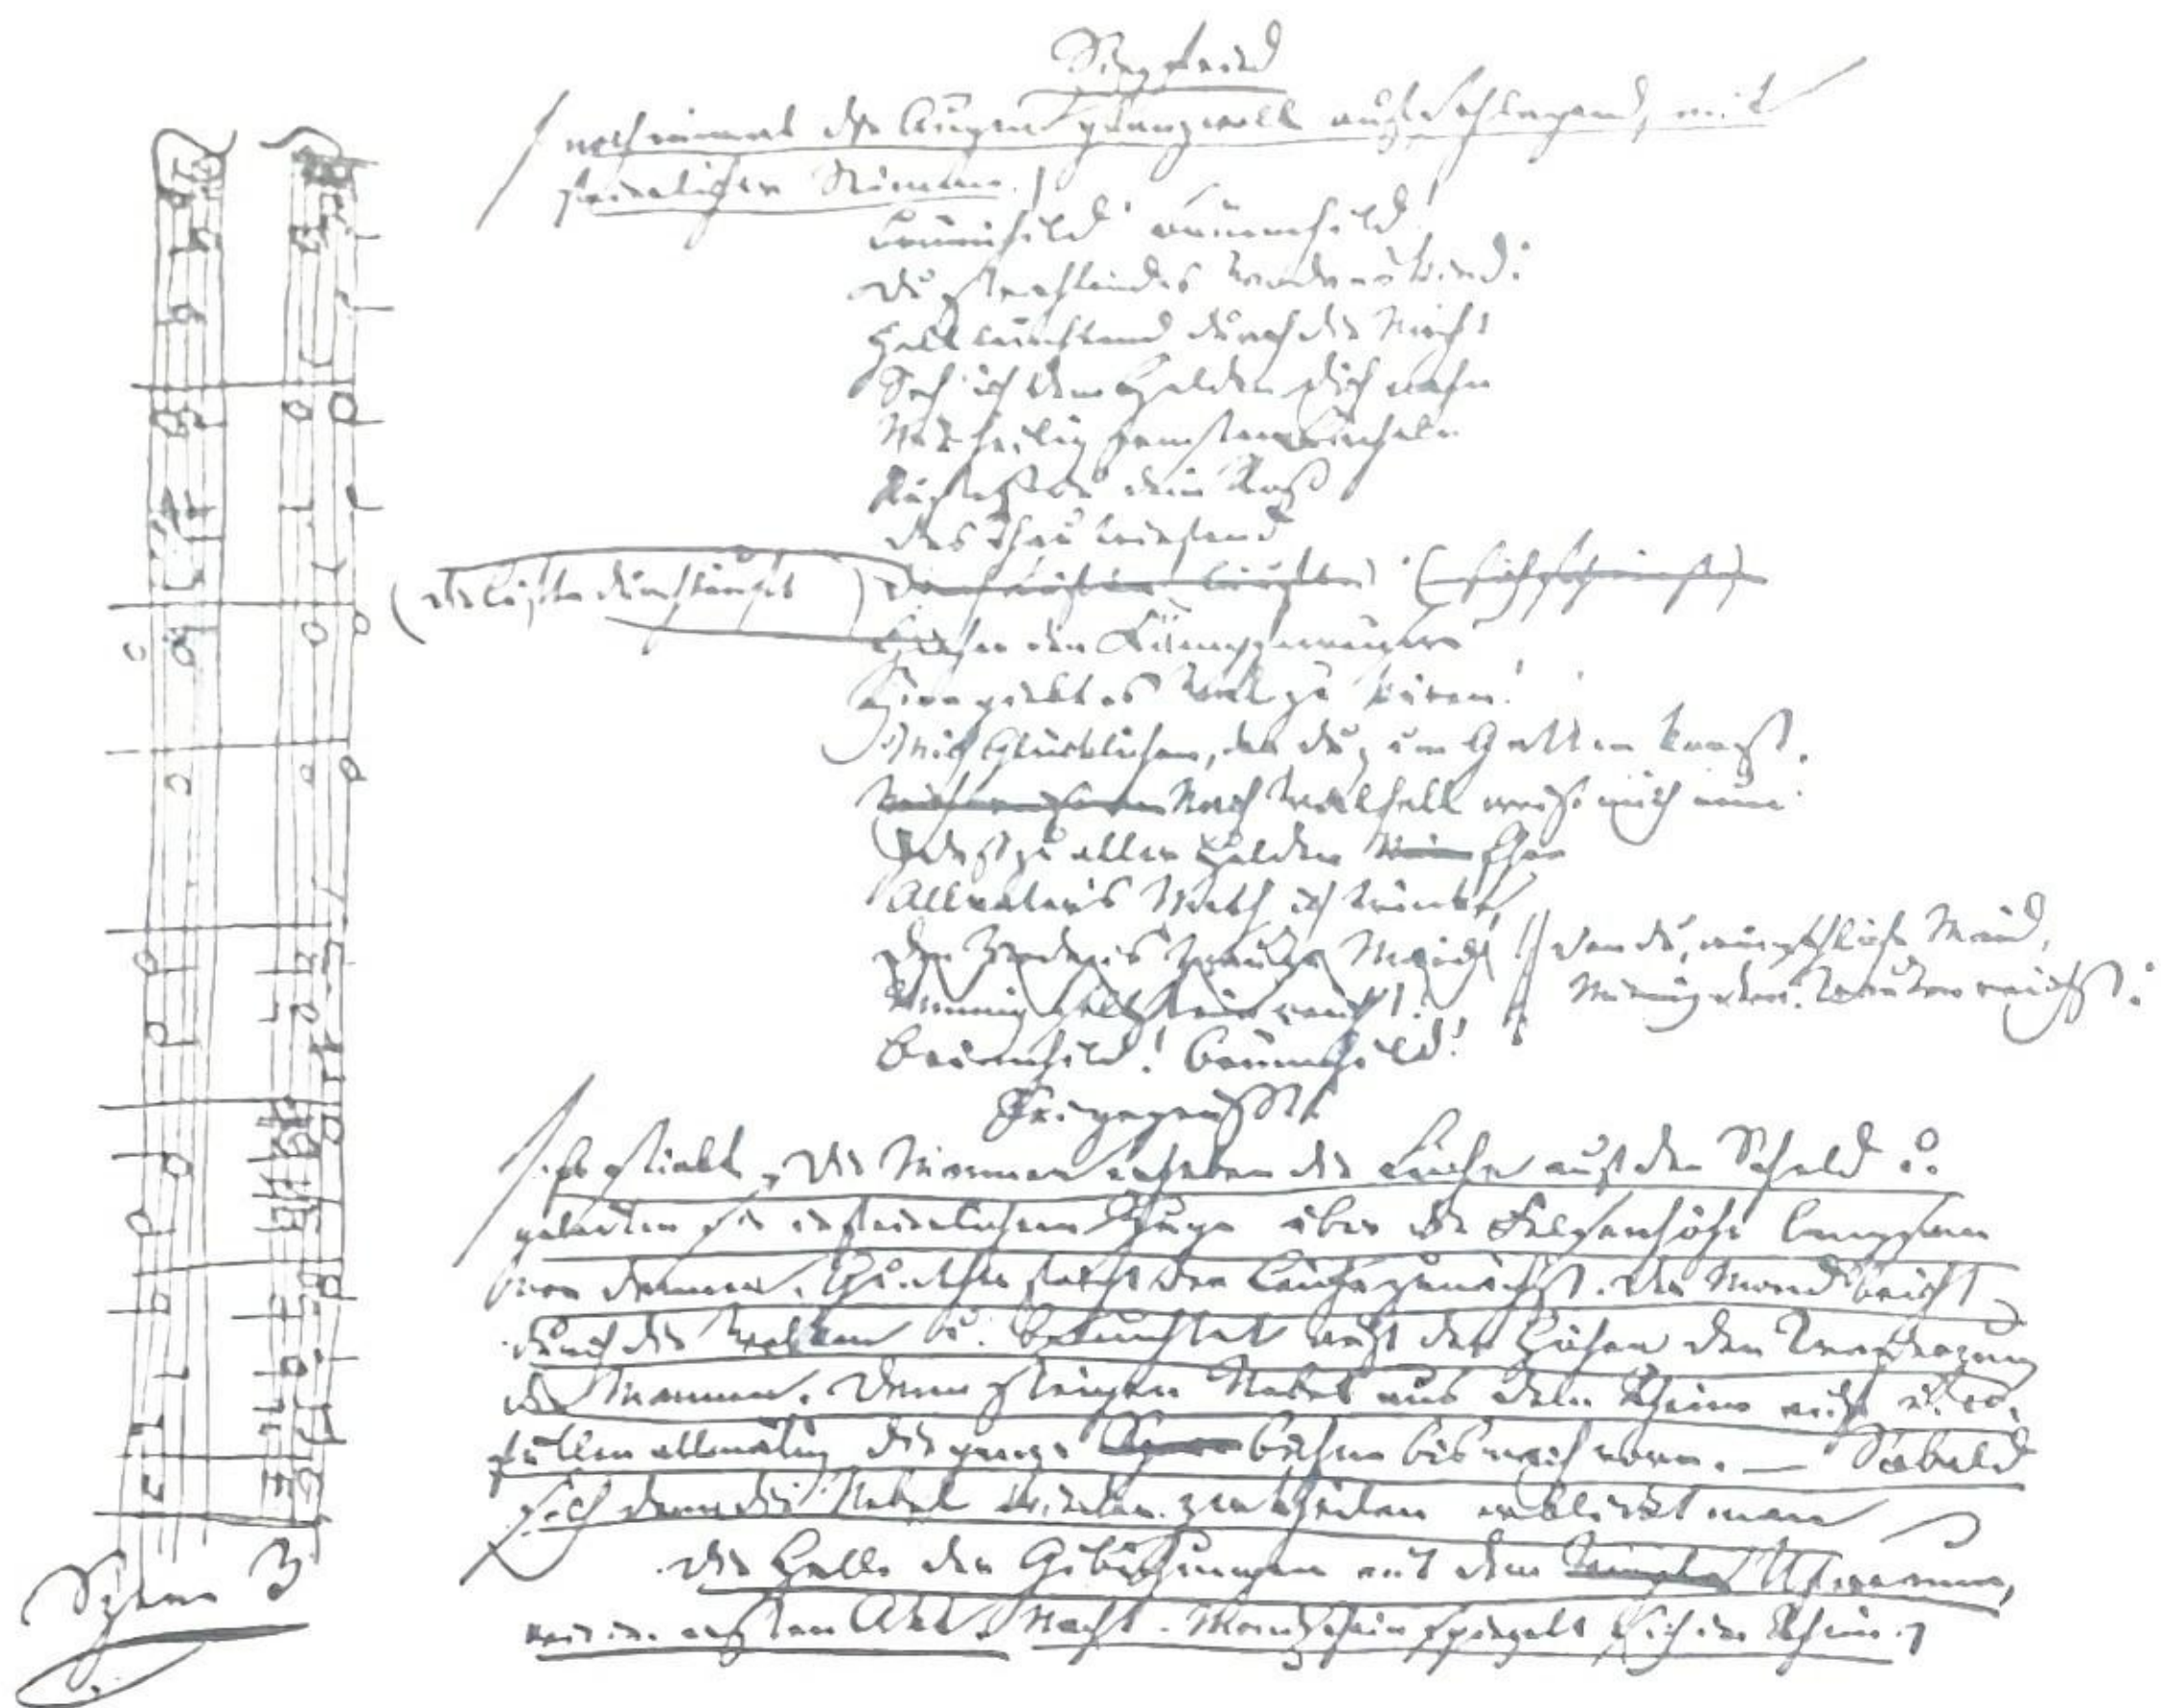 Siegfried
(noch einmal die Augen glanzvoll aufschlagend, mit
feierlicher Stimme.)
Brünnhild! Brünnhild!
Du strahlendes Wodanskind!
Hell leuchtend durch die Nacht
Seh' ich dem Helden dich nahn
Mit heilig ernstem Lächeln
Rüstest du dein Roß
das Thau triefend
(die Lüfte durchläuft)
Hieher den Kampfes
Hier giebt es Wal zu küren!
Mich Glücklichen, den du zum Gatten korst,
Nach Walhall weise mich nun
daß zu aller Helden Ehre
Allvaters Meth ich trinke,
Den du, wünschliche Maid,
Minnig dem Trauten reichst!
Brünnhild! Brünnhild!
Sei gegrüßt!
(Er stirbt, Die Mannen erheben die Leiche auf den Schild u.
geleiten sie in feierlichem Zuge über die Felsenhöhe langsam
von dannen. Gunther folgt der Leiche zunächst. Der Mond bricht
durch die Wolken u. beleuchtet auf der Höhe den Trauerzug
der Mannen. Dann steigen Nebel aus dem Rheine auf u. er-
füllen allmälig die ganze Bühne bis nach vorn. — Sobald
sich dann die Nebel wieder zertheilen erblickt man
die Halle der Gibichungen mit dem Uferraume,
wie im ersten Akt. Nacht. Mondschein spiegelt sich im Rhein.)
Szene 3